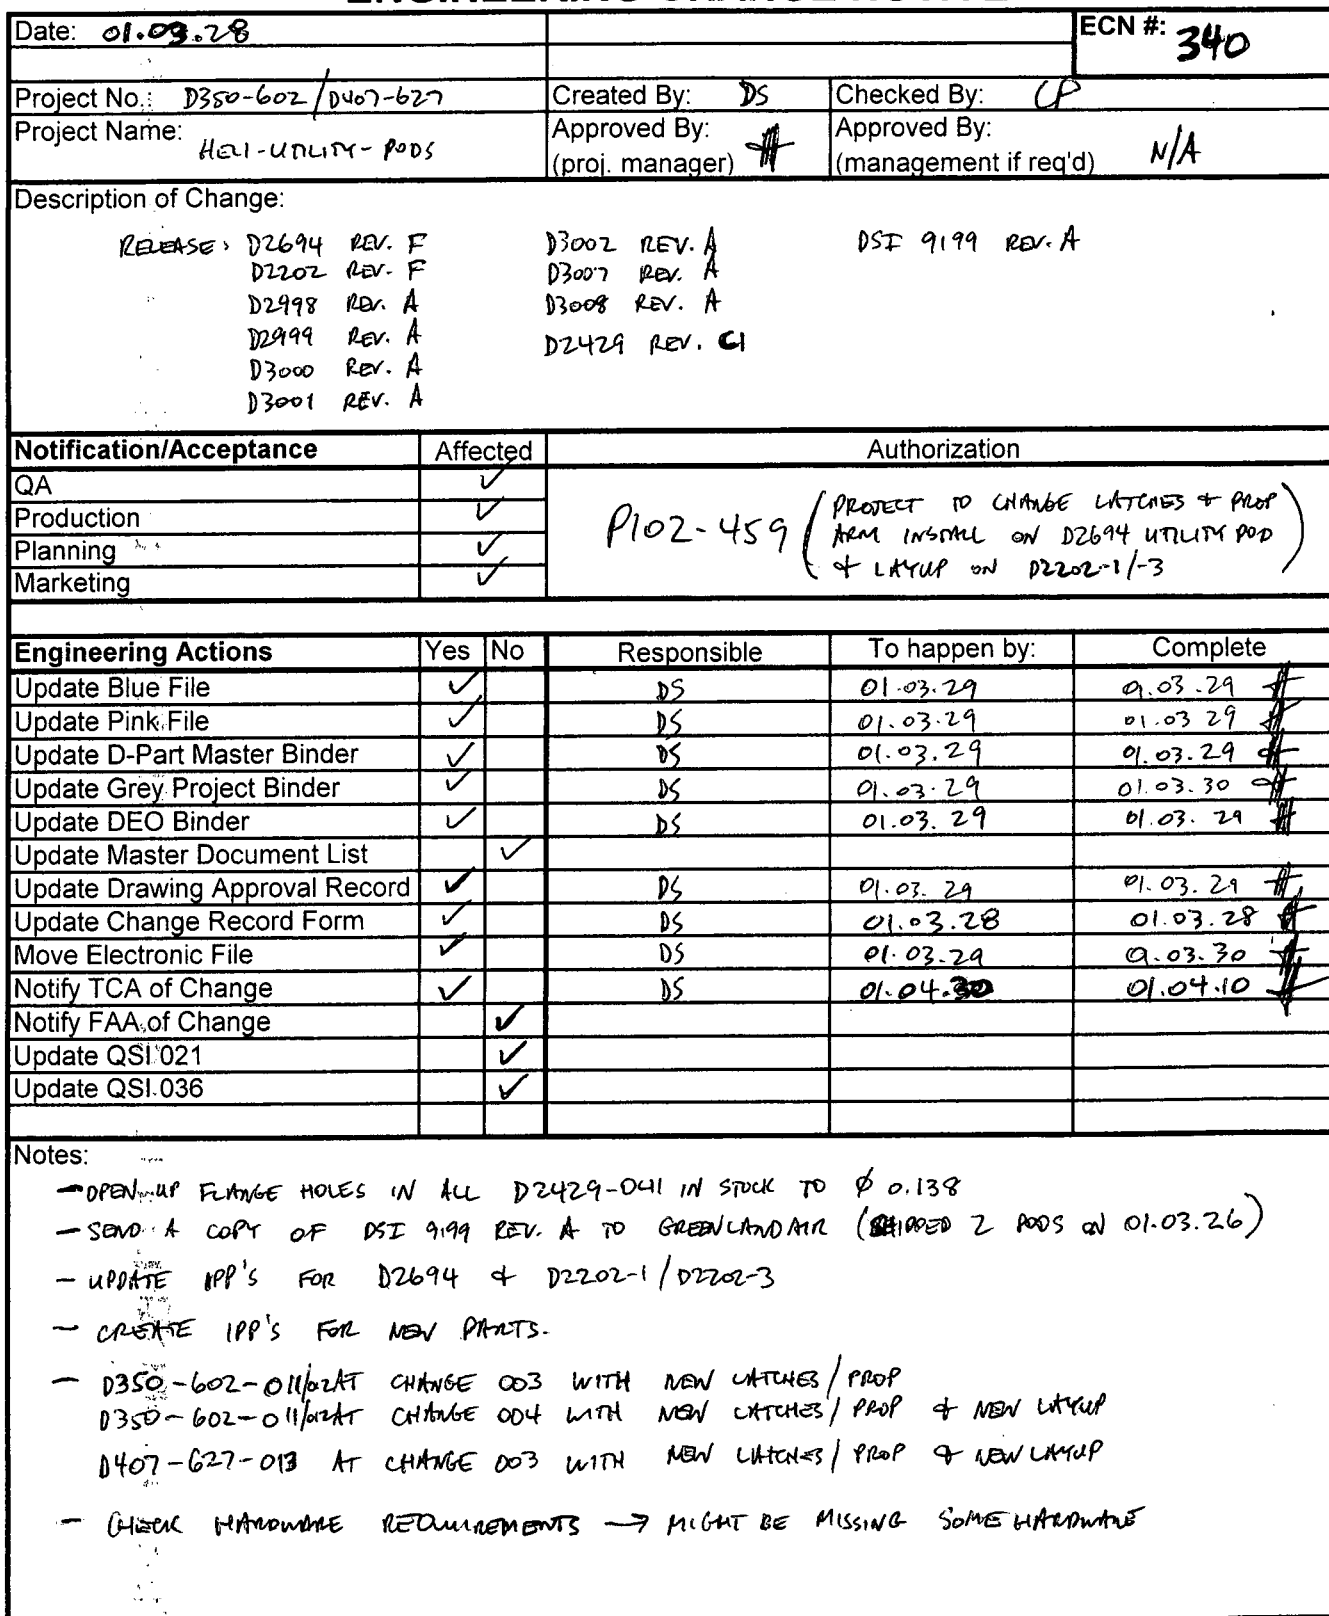 Date: 01.03.28
ECN #: 340
Project No.: D350-602/D407-627
Created By: DS
Checked By: CP
Project Name: HELI-UTILITY-PODS
Approved By:
(proj. manager)
Approved By:
(management if req'd) N/A
Description of Change:
RELEASE: D2694 REV. F D3002 REV. A DSI 9199 REV. A
D2202 REV. F D3007 REV. A
D2998 REV. A D3008 REV. A
D2999 REV. A D2429 REV. C1
D3000 REV. A
D3001 REV. A
Notification/Acceptance Affected Authorization
QA ✓
Production ✓
Planning ✓
Marketing ✓
P102-459 (PROJECT TO CHANGE LATCHES & PROP
ARM INSTALL ON D2694 UTILITY POD
& LAYUP ON D2202-1/-3)
Engineering Actions Yes No Responsible To happen by: Complete
Update Blue File ✓ DS 01.03.29 01.03.29
Update Pink File ✓ DS 01.03.29 01.03 29
Update D-Part Master Binder ✓ DS 01.03.29 01.03.29
Update Grey Project Binder ✓ DS 01.03.29 01.03.30
Update DEO Binder ✓ DS 01.03.29 01.03.29
Update Master Document List ✓
Update Drawing Approval Record ✓ DS 01.03.29 01.03.29
Update Change Record Form ✓ DS 01.03.28 01.03.28
Move Electronic File ✓ DS 01.03.29 01.03.30
Notify TCA of Change ✓ DS 01.04.30 01.04.10
Notify FAA of Change ✓
Update QSI 021 ✓
Update QSI 036 ✓
Notes:
- OPEN UP FLANGE HOLES IN ALL D2429-041 IN STOCK TO Ø 0.138
- SEND A COPY OF DSI 9199 REV. A TO GREENLANDAIR (SHIPPED 2 PODS ON 01.03.26)
- UPDATE IPP'S FOR D2694 & D2202-1/D2202-3
- CREATE IPP'S FOR NEW PARTS.
- D350-602-011/012 AT CHANGE 003 WITH NEW LATCHES/PROP
D350-602-011/012 AT CHANGE 004 WITH NEW LATCHES/PROP & NEW LAYUP
D407-627-013 AT CHANGE 003 WITH NEW LATCHES/PROP & NEW LAYUP
- CHECK HARDWARE REQUIREMENTS → MIGHT BE MISSING SOME HARDWARE